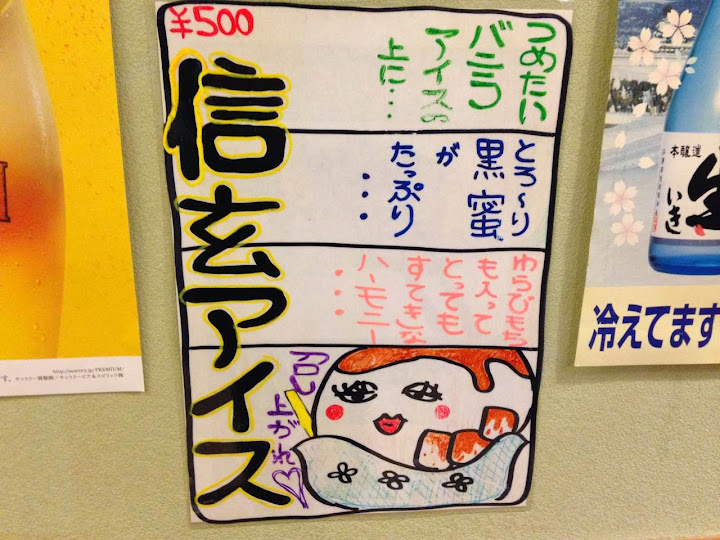 ¥500
信玄アイス
つめたい
バニラ
アイスの
上に…
とろ〜り
黒蜜
が
たっぷり
・・・
わらびもち
も入って
とっても
すてきな
ハーモニー
・・・
召し
上がれ♡
http://suntory.jp/PREMIUM/
本醸造
生
いき
冷えてます